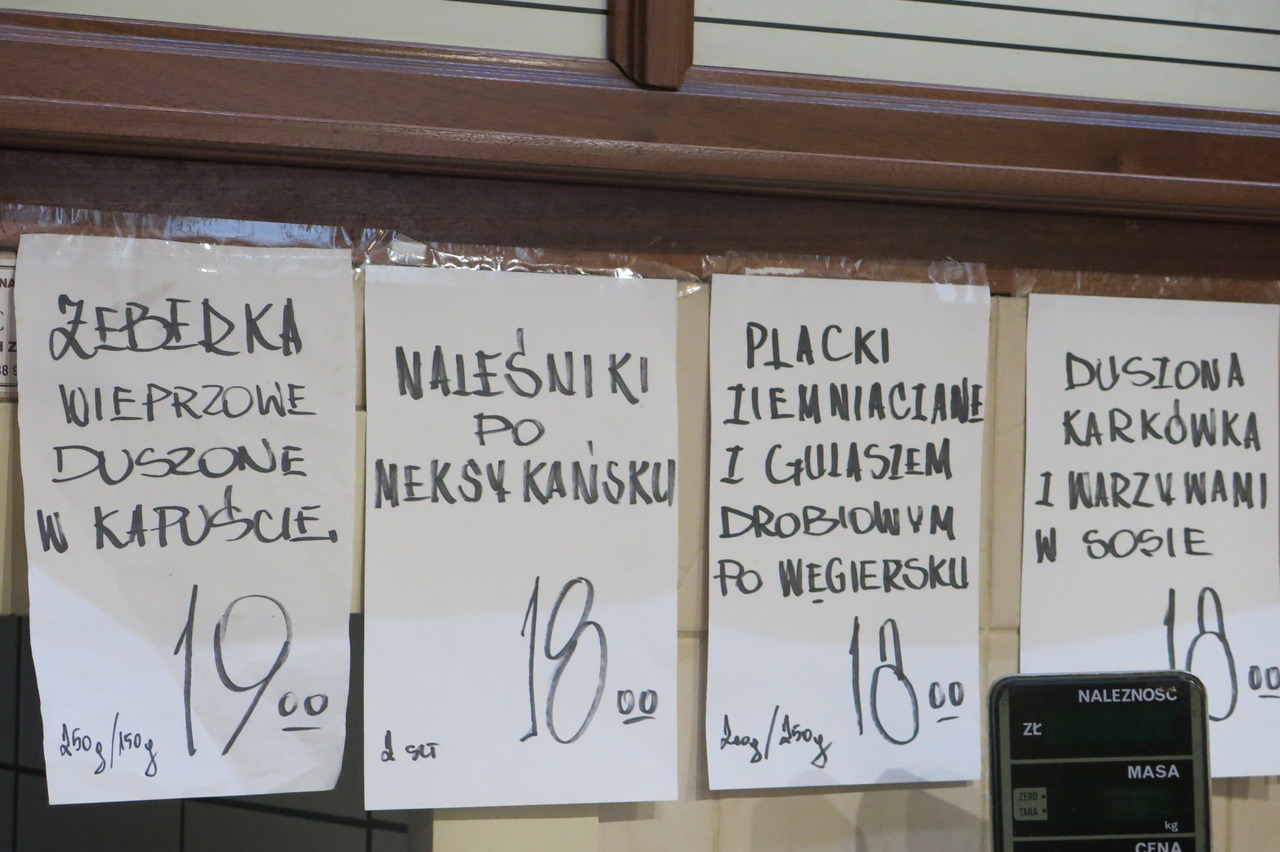 ŻEBERKA
WIEPRZOWE
DUSZONE
W KAPUŚCIE.
19 00
250g/150g
NALEŚNIKI
PO
MEKSYKAŃSKU
18 00
2 SZT
PLACKI
ZIEMNIACZANE
Z GULASZEM
DROBIOWYM
PO WĘGIERSKU
18 00
200g/250g
DUSZONA
KARKÓWKA
Z WARZYWAMI
W SOSIE
18 00
NALEZNOŚĆ
ZŁ
MASA
ZERO
TARA
kg
CENA